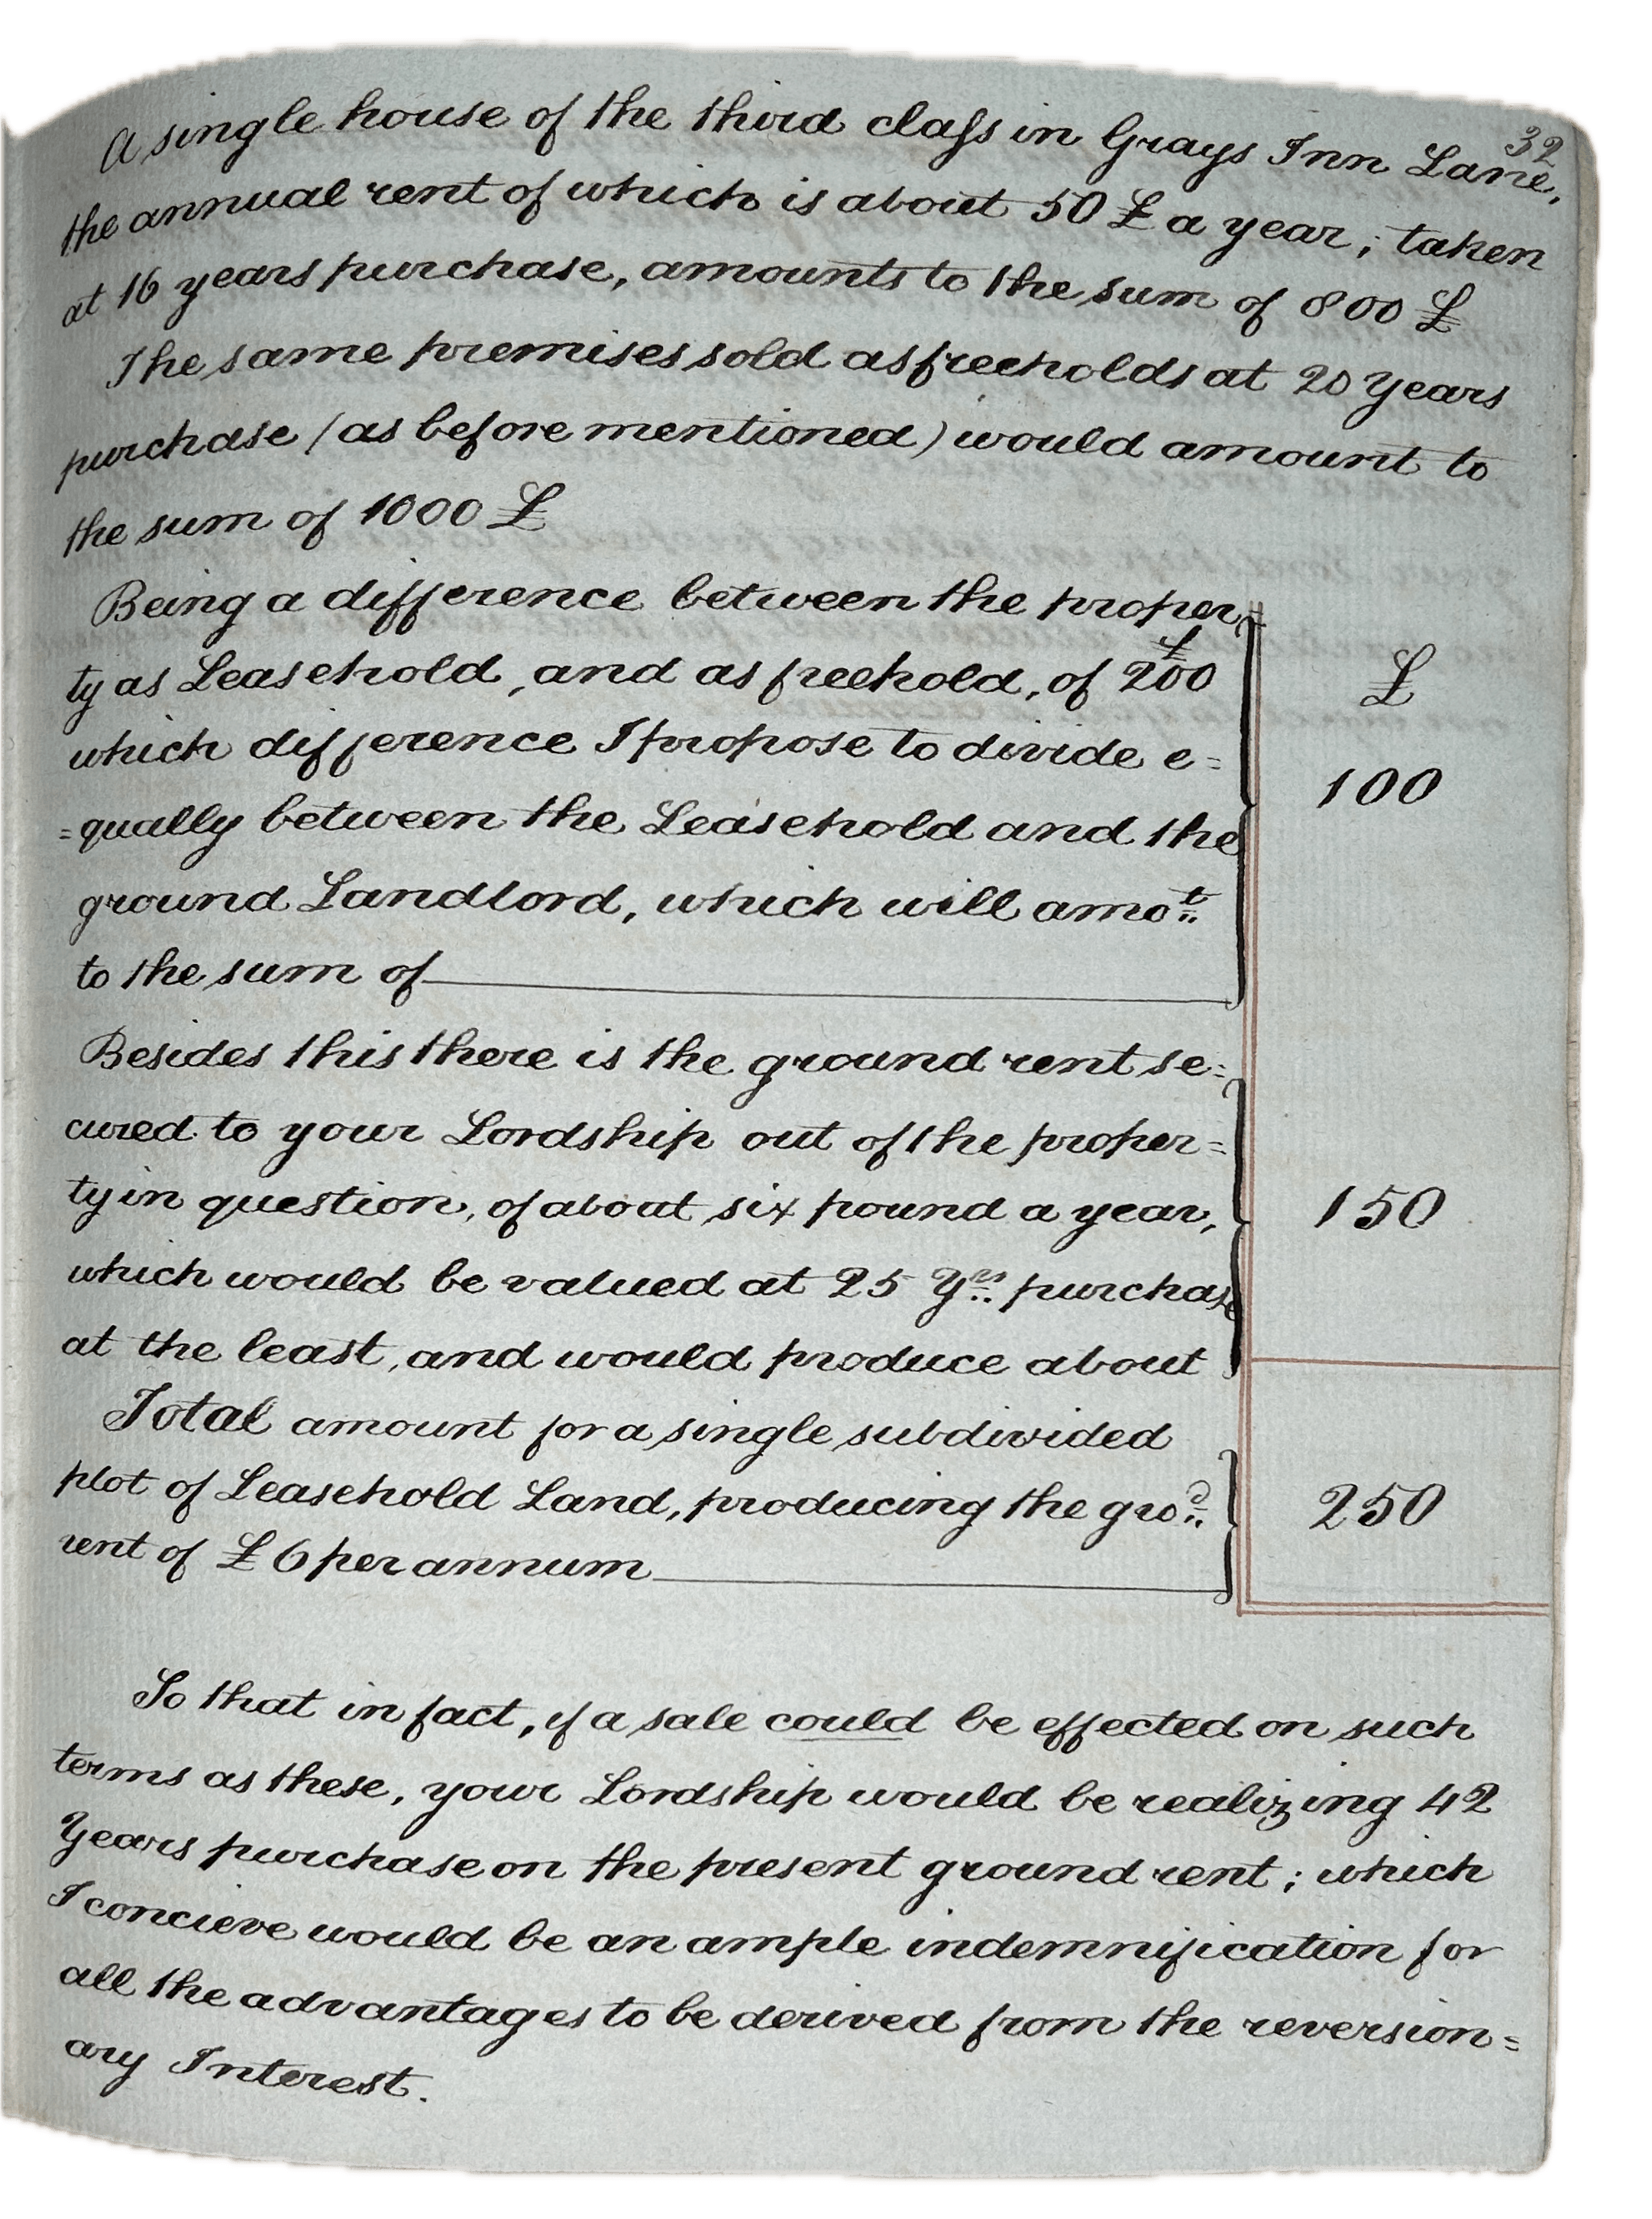 32
A single house of the third claſs in Grays Inn Lane,
the annual rent of which is about 50 £ a year; taken
at 16 years purchase, amounts to the sum of 800 £
The same premises sold as freeholds at 20 Years
purchase (as before mentioned) would amount to
the sum of 1000 £
Being a difference between the proper=
ty as Leasehold, and as freehold, of £200
which difference I propose to divide e=
=qually between the Leasehold and the
ground Landlord, which will amot
to the sum of
£
100
Besides this there is the ground rent se=
cured to your Lordship out of the proper=
ty in question, of about six pound a year,
which would be valued at 25 Yrs purchase
at the least, and would produce about
150
Total amount for a single subdivided
plot of Leasehold Land, producing the grod
rent of £6 per annum
250
So that in fact, if a sale could be effected on such
terms as these, your Lordship would be realizing 42
Years purchase on the present ground rent; which
I concieve would be an ample indemnification for
all the advantages to be derived from the reversion=
ary Interest.